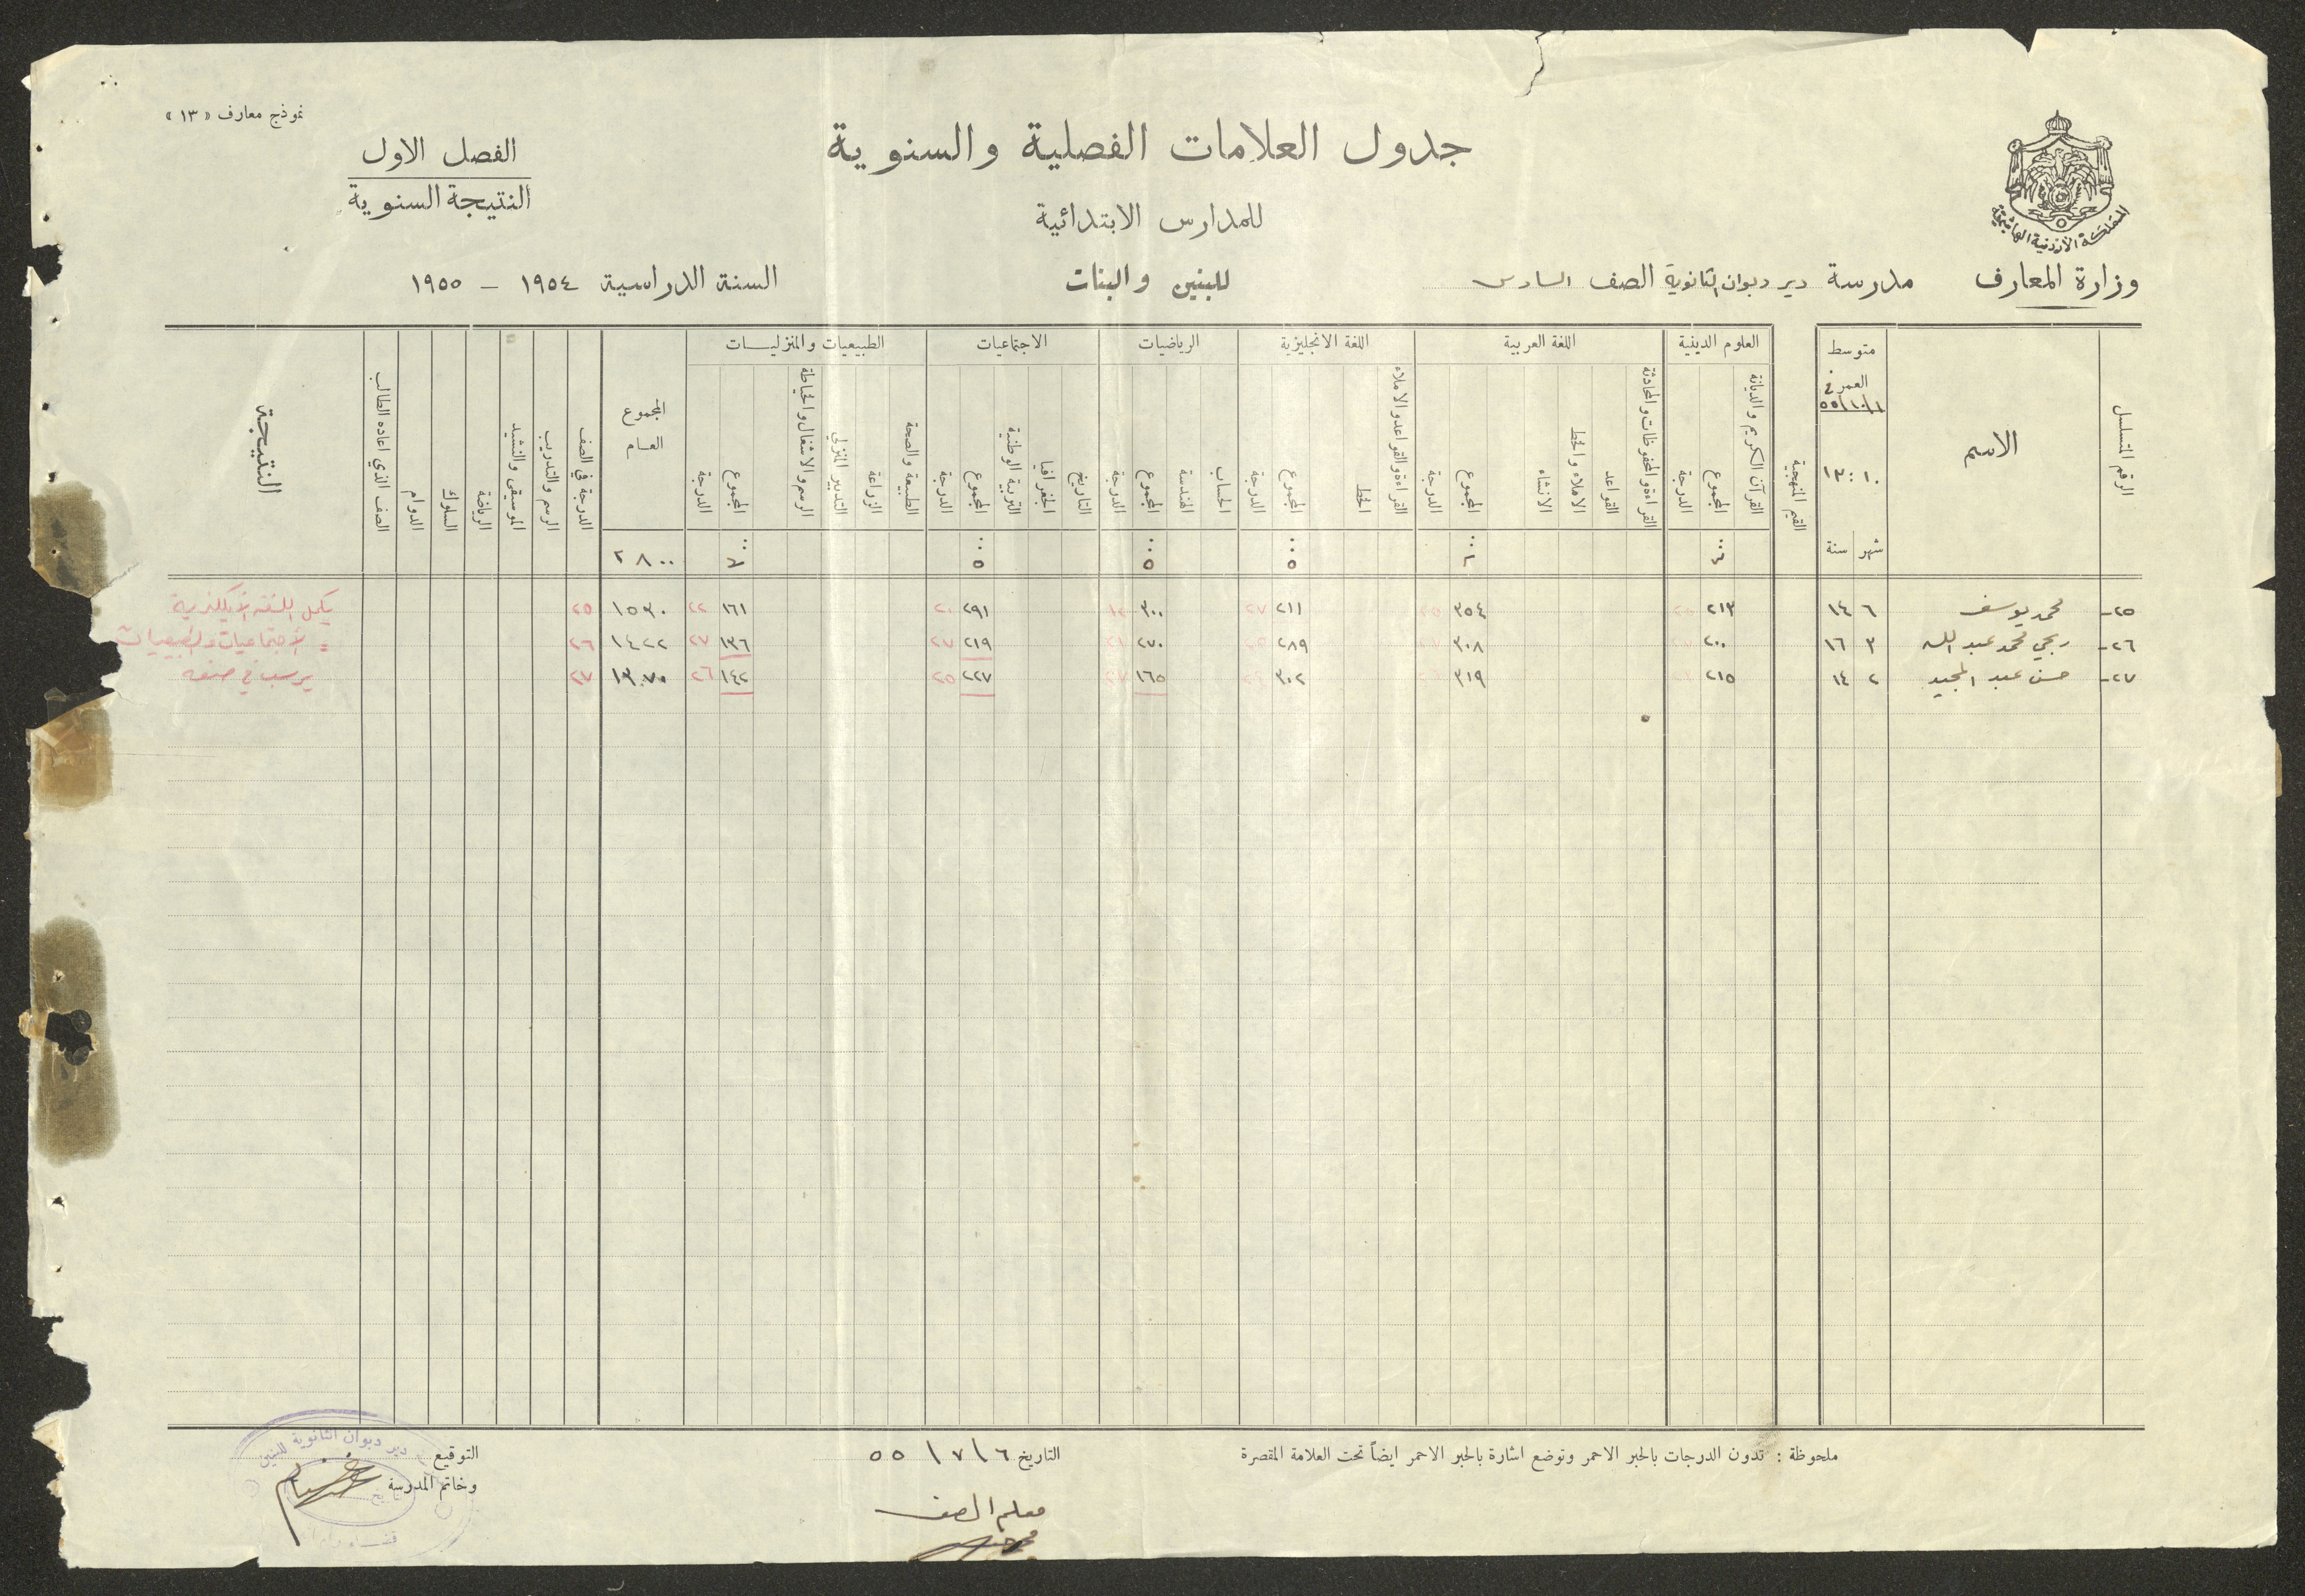 نموذج معارف «١٣»
جدول العلامات الفصلية والسنوية
الفصل الاول
النتيجة السنوية
للمدارس الابتدائية
المملكة الأردنية الهاشمية
وزارة المعارف
مدرسة دير دبوان الثانوية الصف السادس
للبنين والبنات
السنة الدراسية ١٩٥٤ - ١٩٥٥
الرقم المتسلسل
الاسم
متوسط العمر في ١/١٠/٥٥
١٣:١٠
شهر سنة
القيم المنهجية
العلوم الدينية
القرآن الكريم والديانة
المجموع
الدرجة
اللغة العربية
القراءة والمحفوظات والمحادثة
القواعد
الاملاء والخط
الانشاء
المجموع
الدرجة
اللغة الانجليزية
القراءة والقواعد والاملاء
الخط
المجموع
الدرجة
الرياضيات
الحساب
الهندسة
المجموع
الدرجة
الاجتماعيات
التاريخ
الجغرافيا
التربية الوطنية
المجموع
الدرجة
الطبيعيات والمنزليات
الطبيعة والصحة
الزراعة
التدبير المنزلي
الرسم والاشغال والخياطة
المجموع
الدرجة
المجموع العام
الدرجة في الصف
الرسم والتدريب
الموسيقى والنشيد
الرياضة
السلوك
الدوام
الصف الذي اعاده الطالب
النتيجة
٥٠٠ ٥٠٠ ٥٠٠ ٢٨٠٠
٢٥- محمد يوسف ٦ ١٤ ٢١٣ ٣٥٤ ٢١١ ٢٧ ٣٠٠ ٢٩١ ٢٠ ١٦١ ٢٢ ١٥٣٠ ٢٥ يكمل باللغة الانكليزية
٢٦- ربحي محمد عبد الله ٣ ١٦ ٢٠٠ ٣٠٨ ٢٨٩ ٢٧٠ ٢١٩ ٢٧ ١٣٦ ٢٧ ١٤٢٢ ٢٦ = الاجتماعيات والطبيعيات
٢٧- حسن عبد المجيد ٢ ١٤ ٢١٥ ٣١٩ ٣٠٢ ١٦٥ ٢٢٧ ٢٥ ١٤٢ ٢٦ ١٣٧٠ ٢٧ يرسب في صفه
ملحوظة : تدون الدرجات بالحبر الاحمر وتوضع اشارة بالحبر الاحمر ايضاً تحت العلامة المقصرة
التاريخ ٦/٧/٥٥
التوقيع
وخاتم المدرسة
معلم الصف
دير دبوان الثانوية للبنين